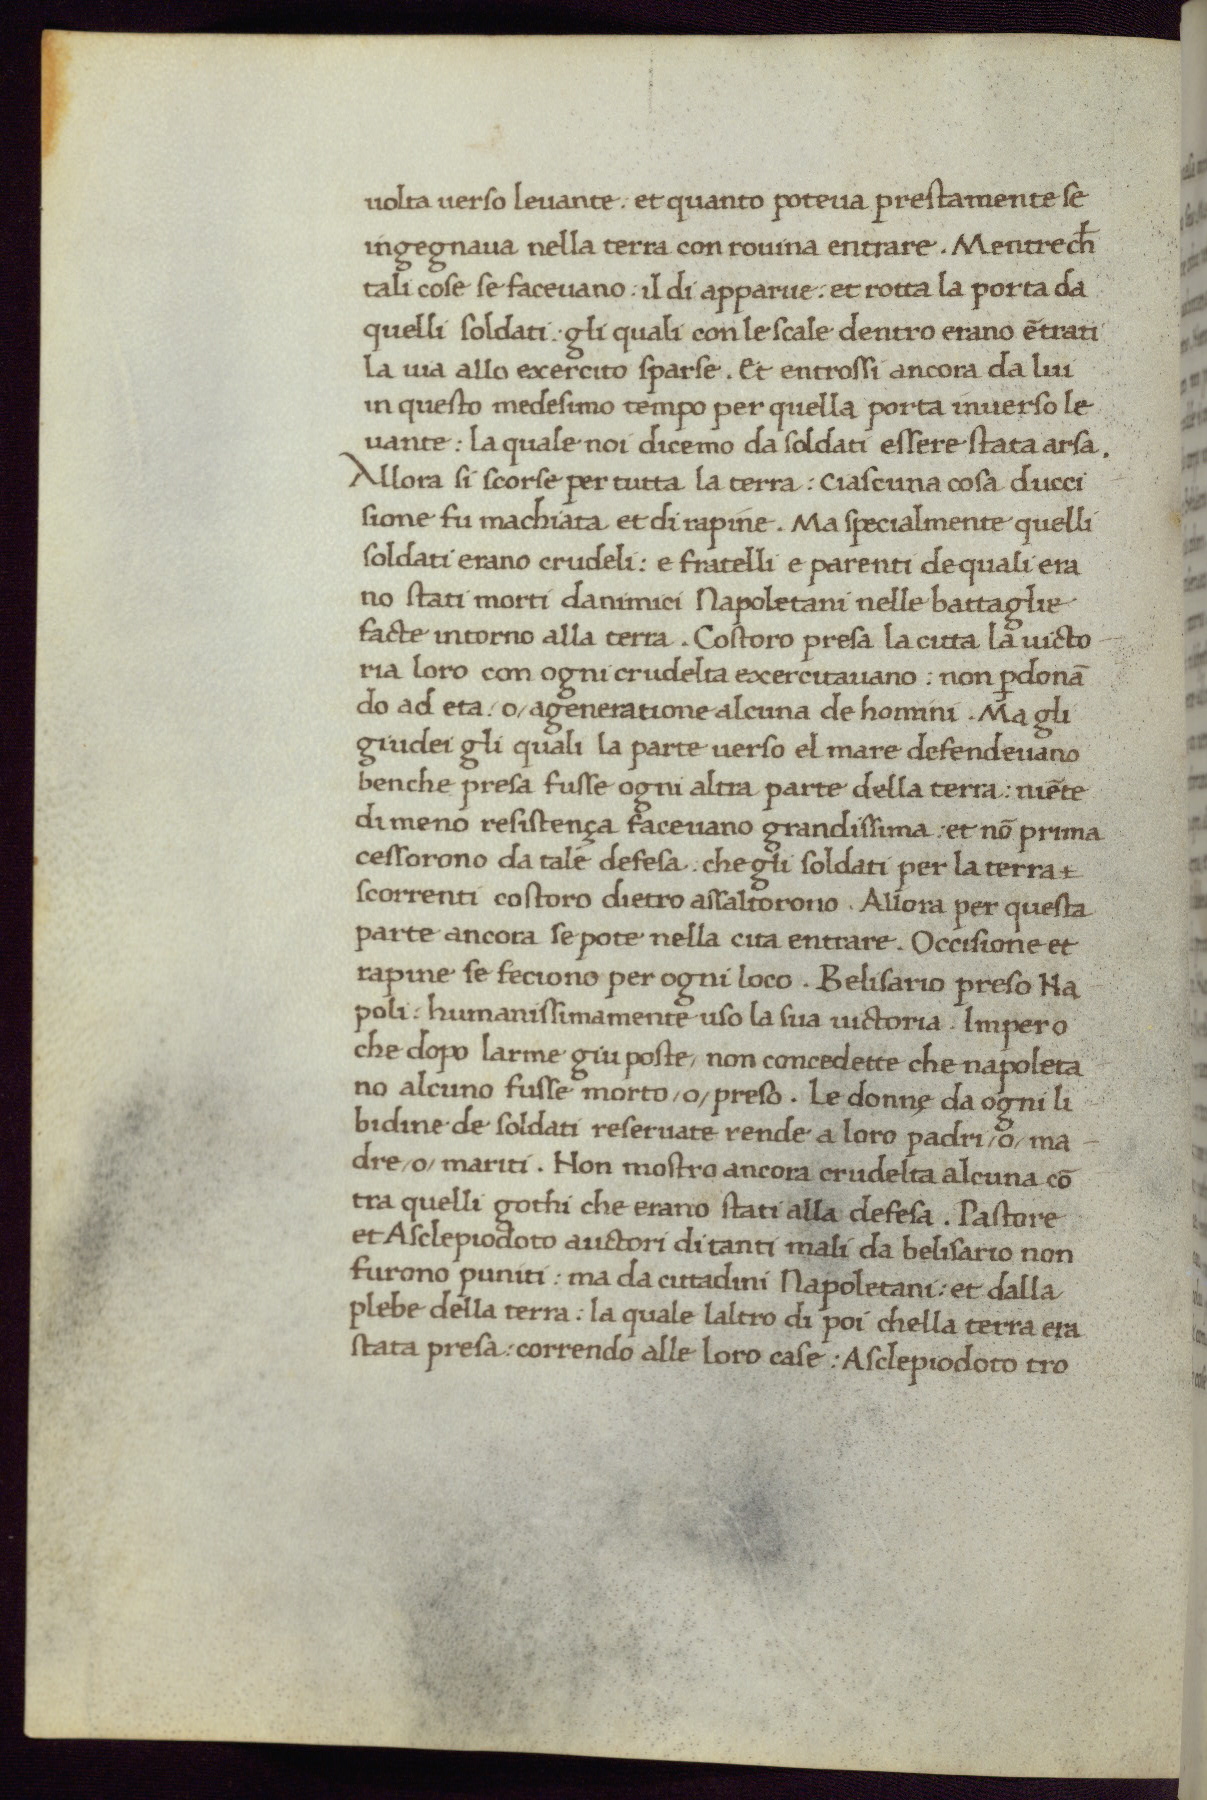 uolta uerso leuante. et quanto poteua prestamente se
ingegnaua nella terra con rouina entrare. Mentrech̄
tali cose se faceuano: il di apparue: et rotta la porta da
quelli soldati: gli quali con le scale dentro erano ētrati
la uia allo exercito sparse. Et entrossi ancora da lui
in questo medesimo tempo per quella porta inuerso le
uante: la quale noi dicemo da soldati essere stata arsa.
Allora si scorse per tutta la terra: ciascuna cosa ducci
sione fu machiata et di rapine. Ma specialmente quelli
soldati erano crudeli: e fratelli e parenti de quali era
no stati morti da nimici Napoletani nelle battaglie
facte intorno alla terra. Costoro presa la citta la uicto
ria loro con ogni crudelta exercitauano: non ꝑdonā
do ad eta /o/ a generatione alcuna de homini. Ma gli
giudei gli quali la parte uerso el mare defendeuano
benche presa fusse ogni altra parte della terra: niēte
di meno resistença faceuano grandissima: et nō prima
cessorono da tale defesa: che gli soldati per la terra
scorrenti costoro dietro assaltorono. Allora per questa
parte ancora se pote nella cita entrare. Occisione et
rapine se feciono per ogni loco. Belisario preso Na
poli: humanissimamente uso la sua uictoria. Impero
che dopo larme giu poste, non concedette che napoleta
no alcuno fusse morto /o/ preso. Le donne da ogni li
bidine de soldati reseruate rende a loro padri /o/ ma
dre /o/ mariti. Non mostro ancora crudelta alcuna cō
tra quelli gothi che erano stati alla defesa. Pastore
et Asclepiodoto auctori di tanti mali da belisario non
furono puniti: ma da cittadini Napoletani: et dalla
plebe della terra: la quale laltro di poi chella terra era
stata presa: correndo alle loro case: Asclepiodoto tro